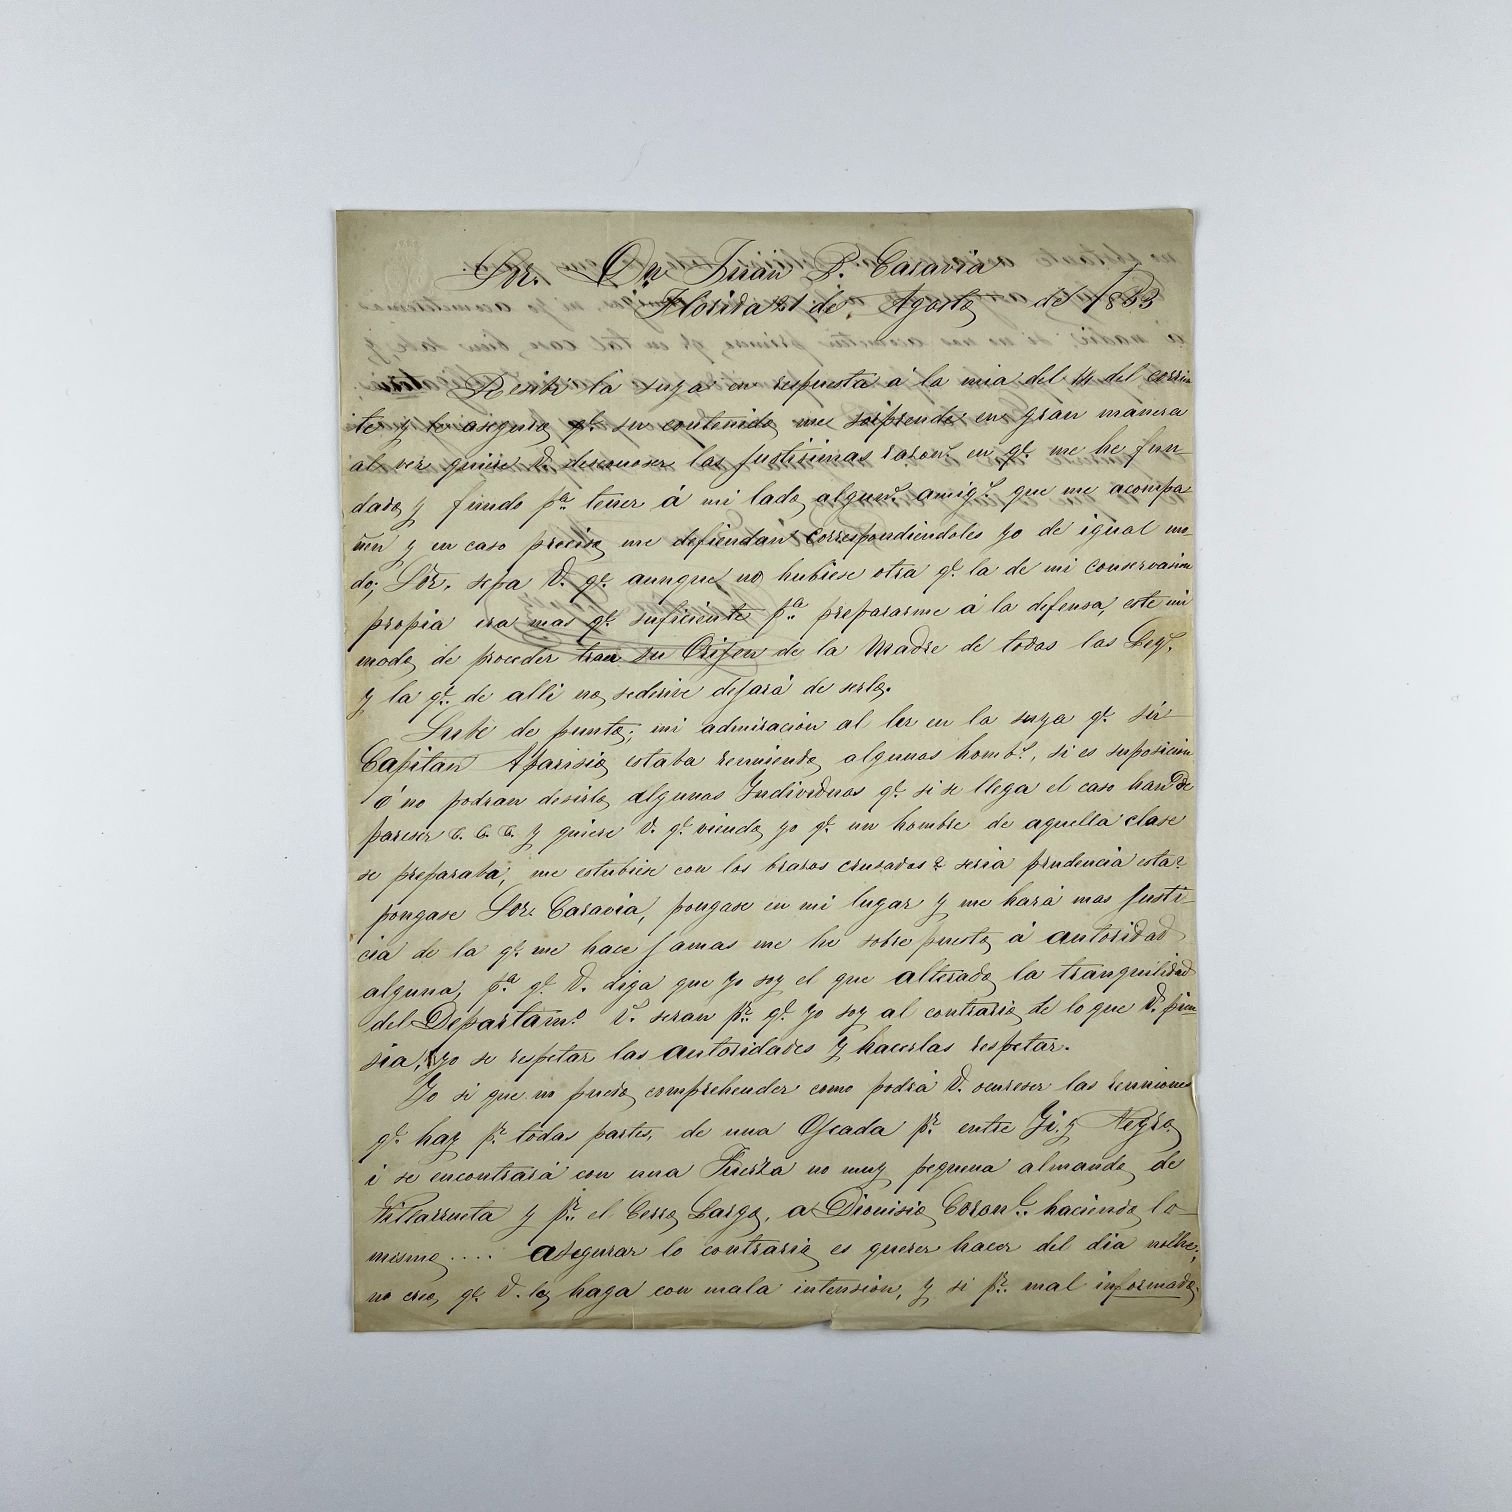 Sor. Dn Juan P. Caravia
Florida 21 de Agosto de 1853
Resibi la suya en respuesta á la mia del 14 del corrien
te y le aseguro qe. su contenido me sorprende en gran manera
al ver quiere V. desconoser las justisimas rasons. en qe. me he fun-
dado y fundo pa. tener á mi lado alguns. amigs. que me acompa-
ñen y en caso preciso me defiendan correspondiendoles yo de igual mo-
do; Sor. sepa V. qe. aunque no hubiese otra qe. la de mi conservasion
propia era mas qe. suficiente pa. prepararme á la defensa, este mi
modo de proceder trae su Orijen de la Madre de todas las Leys.
y la qe. de alli no sederive dejará de serlo.
Sube de punto; mi admiracion al ler en la suya qe. sir
Capitan Aparisio estaba reuniendo algunos hombs., si es suposicion
ó no podran desirlo algunos Individuos qe. si se llega el caso han de
pareser &. &. &. y quiere V. qe. viendo yo qe. un hombre de aquella clase
se preparaba, me estubiese con los brasos crusados? seria prudencia esta?
pongase Sor. Caravia, pongase en mi lugar y me hará mas justi-
cia de la qe. me hace jamas me he sobre puesto á autoridad
alguna, pa. qe. V. diga que yo soy el que alterado la tranquilidad
del Departamo. Vs. seran pr. qe. yo soy al contrario de lo que V. pien
sia, yo se respetar las autoridades y hacerlas respetar.
Yo si que no puedo comprehender como podrá V. ocureser las reuniones
qe. hay pr. todas partes, de una Ojeada pr. entre Yi. y Negro
i se encontrará con una Fuersa no muy pequena almando de
Villarrueta y pr. el Cerro Largo, a Dionisio Coronl. haciendo lo
mismo .... asegurar lo contrario es querer hacer del dia nolhe;
no creo qe. V. lo haga con mala intension, y si pr. mal informado.